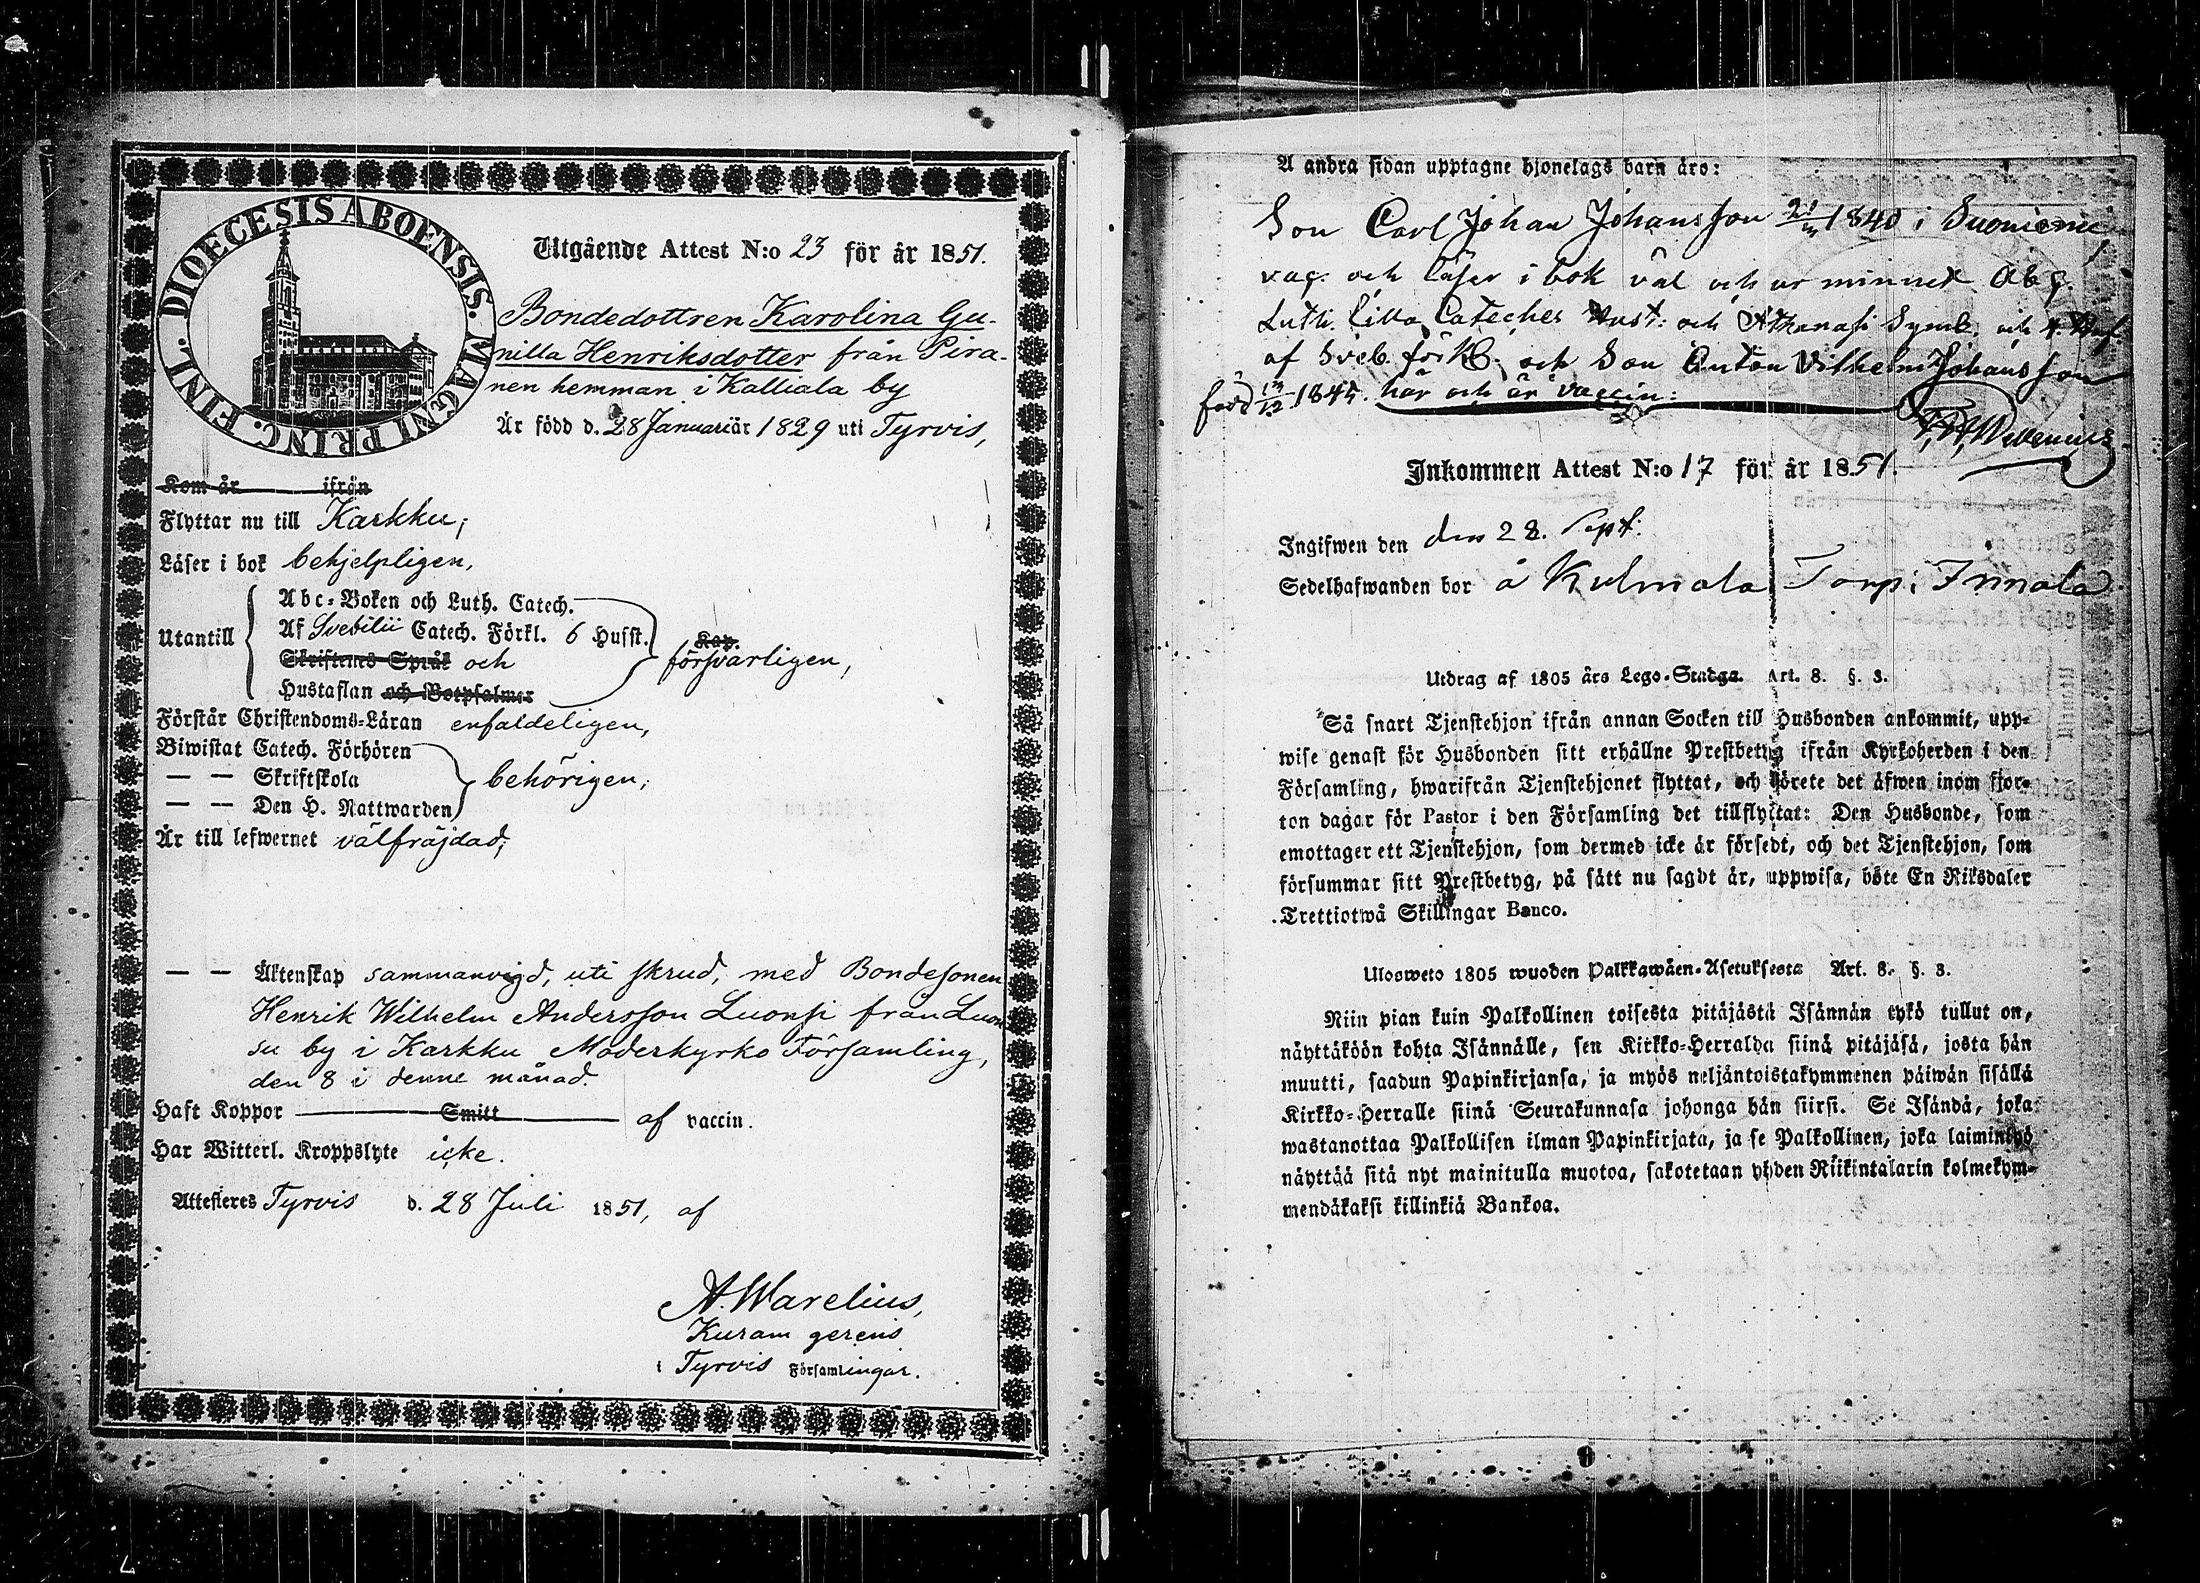 DIOECESIS ABOENSIS. MAGNI PRINC. FINL.
Utgående Attest N:o 23 för år 1851.
Bondedottren Karolina Gu-
nilla Henriksdotter från Pira-
nen hemman i Kalliala by
Är född d. 28 Januarii år 1829 uti Tyrvis,
Kom år ifrån
Flyttar nu till Karkku,
Läser i bok behjelpligen,
Utantill
Abc-Boken och Luth. Catech.
Af Svebilii Catech. Förkl. 6 Husst. Kap.
Skriftenes Språk och försvarligen,
Hustaflan och Botpsalmer
Förstår Christendoms-Läran enfaldeligen,
Biwistat Catech. Förhören
— — Skriftskola behörigen,
— — Den H. Nattwarden
Är till lefwernet välfräjdad;
— — Äktenskap sammanvigd, uti skrud, med Bondesonen
Henrik Wilhelm Andersson Luonsi från Luon
su by i Karkku Moderkyrko Församling,
den 8 i denne månad.
Haft Koppor Smitt af vaccin.
Har Witterl. Kroppslyte icke.
Attesteres Tyrvis d. 28 Juli 1851, af
A. Warelius,
Kuram gerens
i Tyrvis Församlingar.
Å andra sidan upptagne hjonelags barn äro:
Son Carl Johan Johansson 1840 i Suoniemi,
vac. och läser i bok väl och ur minnet Abc.
Luth. Lilla Cateches Hust: och Athanasi Symb. och
af Sveb. förkl. och Son Anton Vilhelm Johansson
född 13/12 184 här och är vaccin:
Inkommen Attest N:o 17 för år 1851.
Ingifwen den den 28. Sept:
Sedelhafwanden bor å Kulmala Torp i Innala
Utdrag af 1805 års Lego-Stadga. Art. 8. §. 3.
Så snart Tjenstehjon ifrån annan Socken till Husbonden ankommit, upp-
wise genast för Husbonden sitt erhållne Prestbetyg ifrån Kyrkoherden i den
Församling, hwarifrån Tjenstehjonet flyttat, och förete det äfwen inom fjor-
ton dagar för Pastor i den Församling det tillflyttat: Den Husbonde, som
emottager ett Tjenstehjon, som dermed icke är försedt, och det Tjenstehjon, som
försummar sitt Prestbetyg, på sätt nu sagdt är, uppwisa, böte En Riksdaler
Trettiotwå Skillingar Banco.
Ulosweto 1805 wuoden Palkkawäen-Asetuksesta Art. 8. §. 3.
Niin pian kuin Palkollinen toisesta pitäjästä Isännän tykö tullut on,
näyttäköön kohta Isännälle, sen Kirkko-Herralda siinä pitäjäsä, josta hän
muutti, saadun Papinkirjansa, ja myös neljäntoistakymmenen päiwän sisällä
Kirkko-Herralle siinä Seurakunnasa johonga hän siirsi. Se Isändä, joka
wastanottaa Palkollisen ilman Papinkirjata, ja se Palkollinen, joka laiminlyö
näyttää sitä nyt mainitulla muotoa, sakotetaan yhden Riikintalarin kolmekym-
mendäkaksi killinkiä Bankoa.